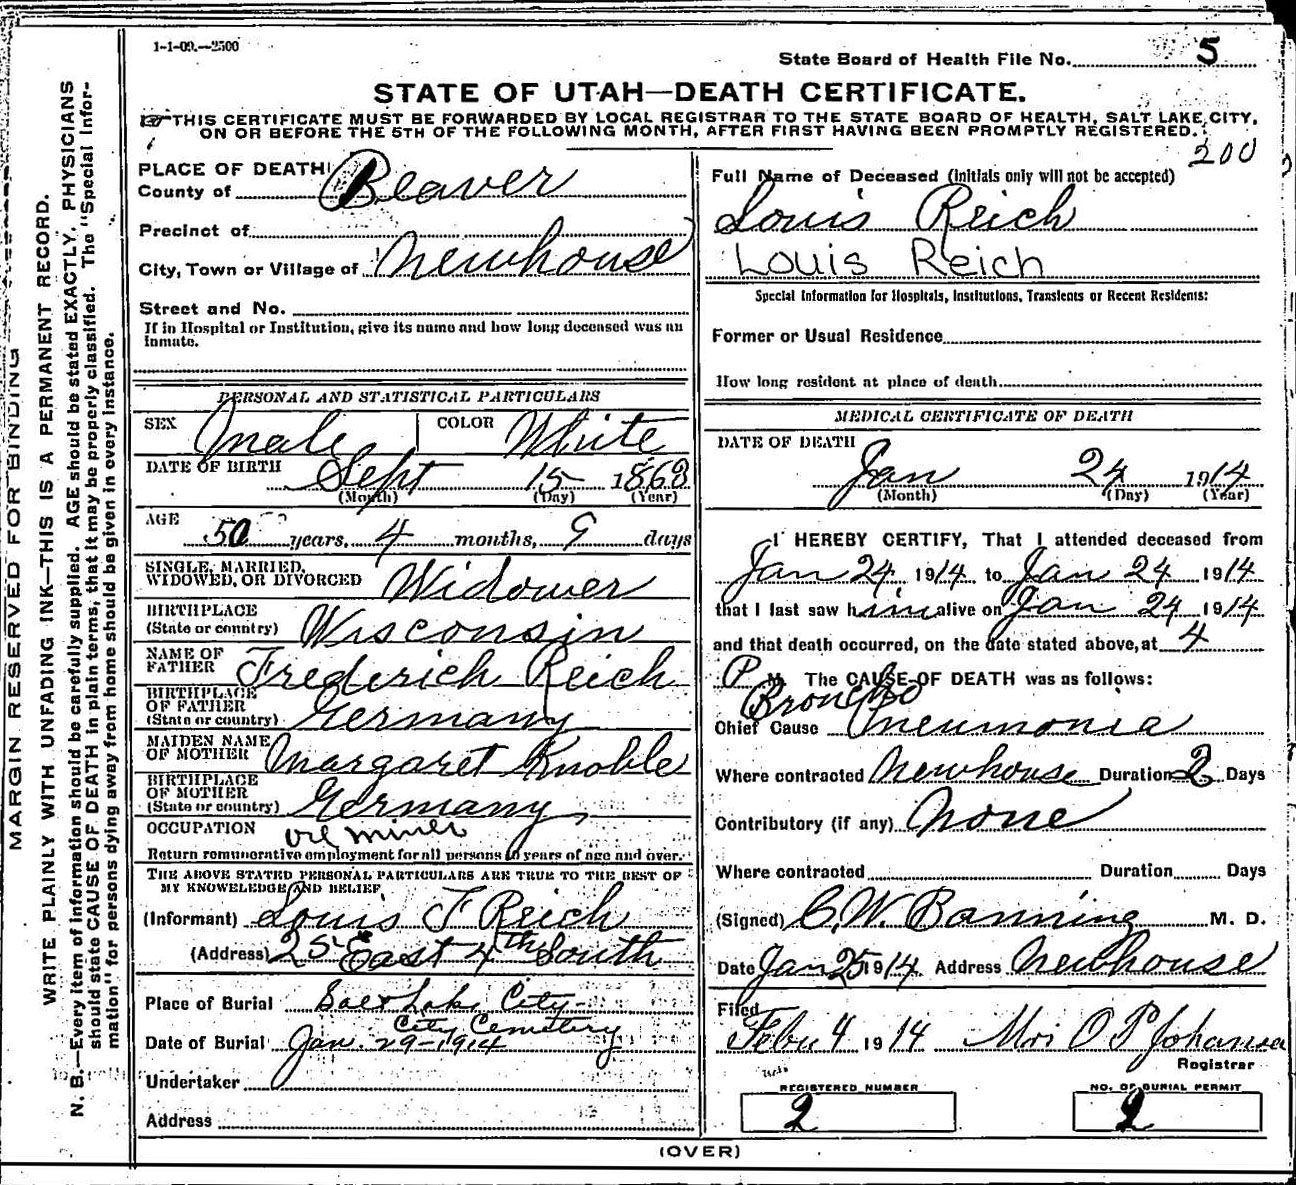 1-1-09.—2500
State Board of Health File No. 5
STATE OF UTAH—DEATH CERTIFICATE.
THIS CERTIFICATE MUST BE FORWARDED BY LOCAL REGISTRAR TO THE STATE BOARD OF HEALTH, SALT LAKE CITY,
ON OR BEFORE THE 5TH OF THE FOLLOWING MONTH, AFTER FIRST HAVING BEEN PROMPTLY REGISTERED.
200
MARGIN RESERVED FOR BINDING
WRITE PLAINLY WITH UNFADING INK—THIS IS A PERMANENT RECORD.
N. B.—Every item of information should be carefully supplied. AGE should be stated EXACTLY. PHYSICIANS
should state CAUSE OF DEATH in plain terms, that it may be properly classified. The "Special Infor-
mation" for persons dying away from home should be given in every instance.
PLACE OF DEATH
County of Beaver
Precinct of
City, Town or Village of Newhouse
Street and No.
If in Hospital or Institution, give its name and how long deceased was an
inmate.
PERSONAL AND STATISTICAL PARTICULARS
SEX Male COLOR White
DATE OF BIRTH Sept 15 1863
(Month) (Day) (Year)
AGE 50 years, 4 months, 9 days
SINGLE, MARRIED,
WIDOWED, OR DIVORCED Widower
BIRTHPLACE
(State or country) Wisconsin
NAME OF
FATHER Frederich Reich
BIRTHPLACE
OF FATHER
(State or country) Germany
MAIDEN NAME
OF MOTHER Margaret Knoble
BIRTHPLACE
OF MOTHER
(State or country) Germany
OCCUPATION ore miner
Return remunerative employment for all persons 10 years of age and over.
THE ABOVE STATED PERSONAL PARTICULARS ARE TRUE TO THE BEST OF
MY KNOWELEDGE AND BELIEF
(Informant) Louis F Reich
(Address) 25 East 4th South
Place of Burial Salt Lake City
City Cemetery
Date of Burial Jan. 29-1914
Undertaker
Address
Full Name of Deceased (initials only will not be accepted)
Louis Reich
Louis Reich
Special Information for Hospitals, Institutions, Transients or Recent Residents:
Former or Usual Residence
How long resident at place of death
MEDICAL CERTIFICATE OF DEATH
DATE OF DEATH Jan 24 1914
(Month) (Day) (Year)
I HEREBY CERTIFY, That I attended deceased from
Jan 24 1914 to Jan 24 1914
that I last saw him alive on Jan 24 1914
and that death occurred, on the date stated above, at 4
P M. The CAUSE OF DEATH was as follows:
Broncho
Chief Cause Pneumonia
Where contracted Newhouse Duration 2 Days
Contributory (if any) None
Where contracted Duration Days
(Signed) C. W. Banning M. D.
Date Jan 25 1914. Address Newhouse
Filed
Febu 4 1914 Mrs O P Johansa
Registrar
REGISTERED NUMBER
2
NO. OF BURIAL PERMIT
2
(OVER)